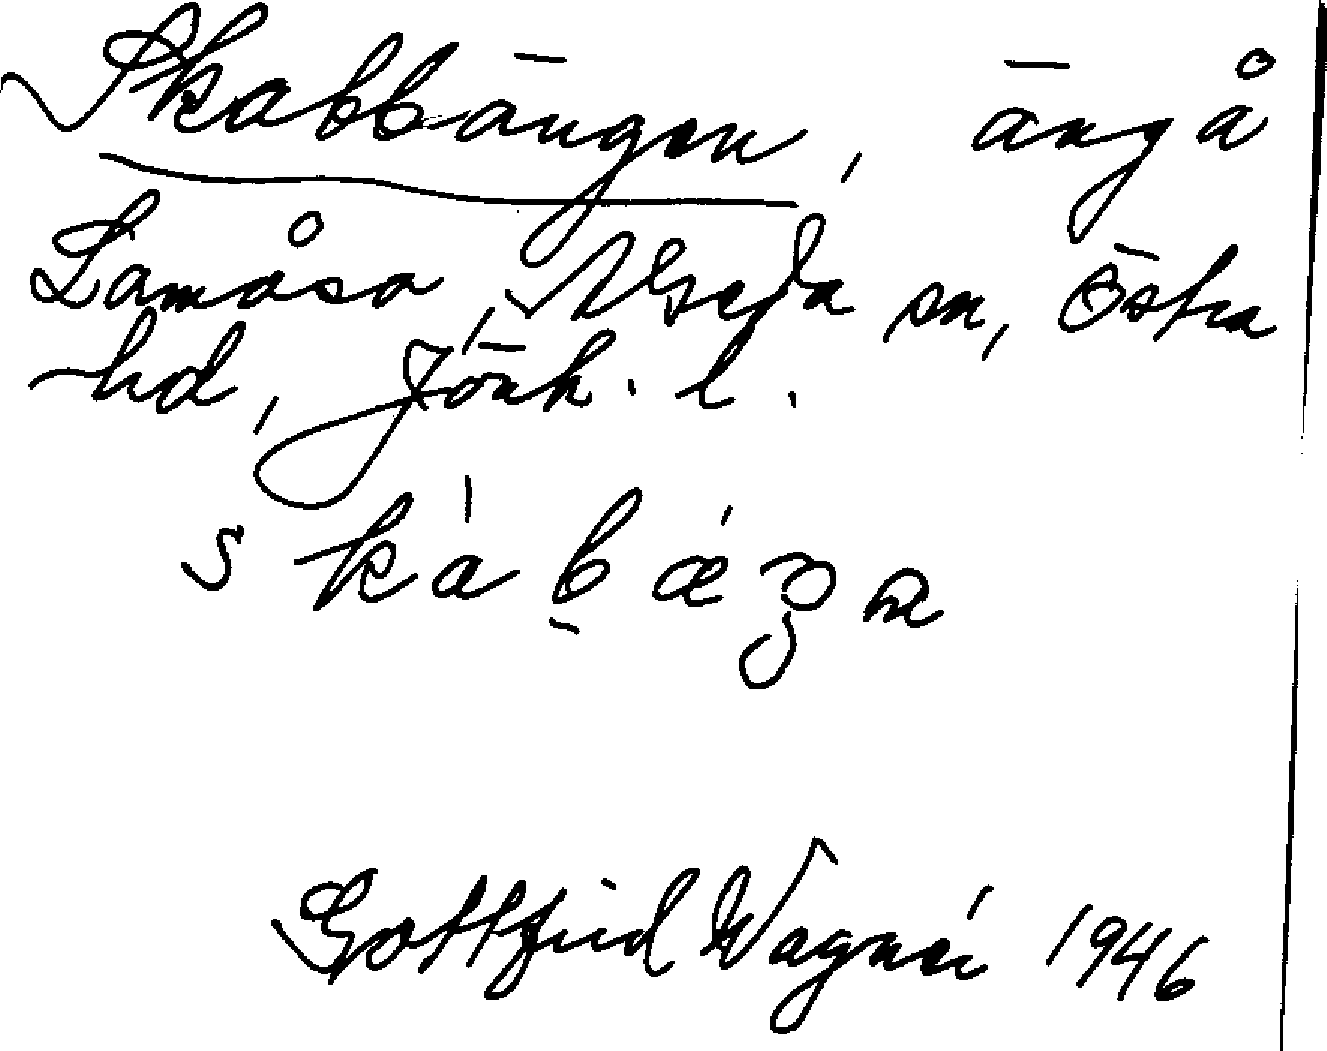 Skabbängen, äng å
Lamåsa, Alseda sn, Östra
hd, Jönk. l.
Gottfrid Wagnér 1946